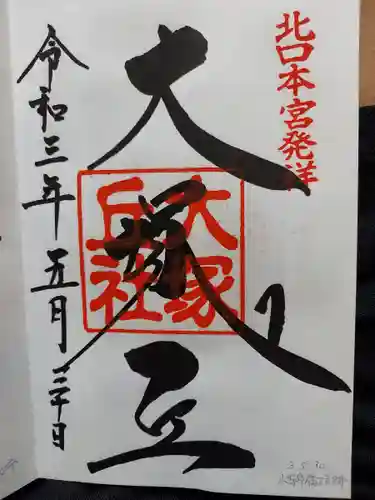 北口本宮発祥
大塚丘
大塚丘社
令和三年五月三十日
3.5.30